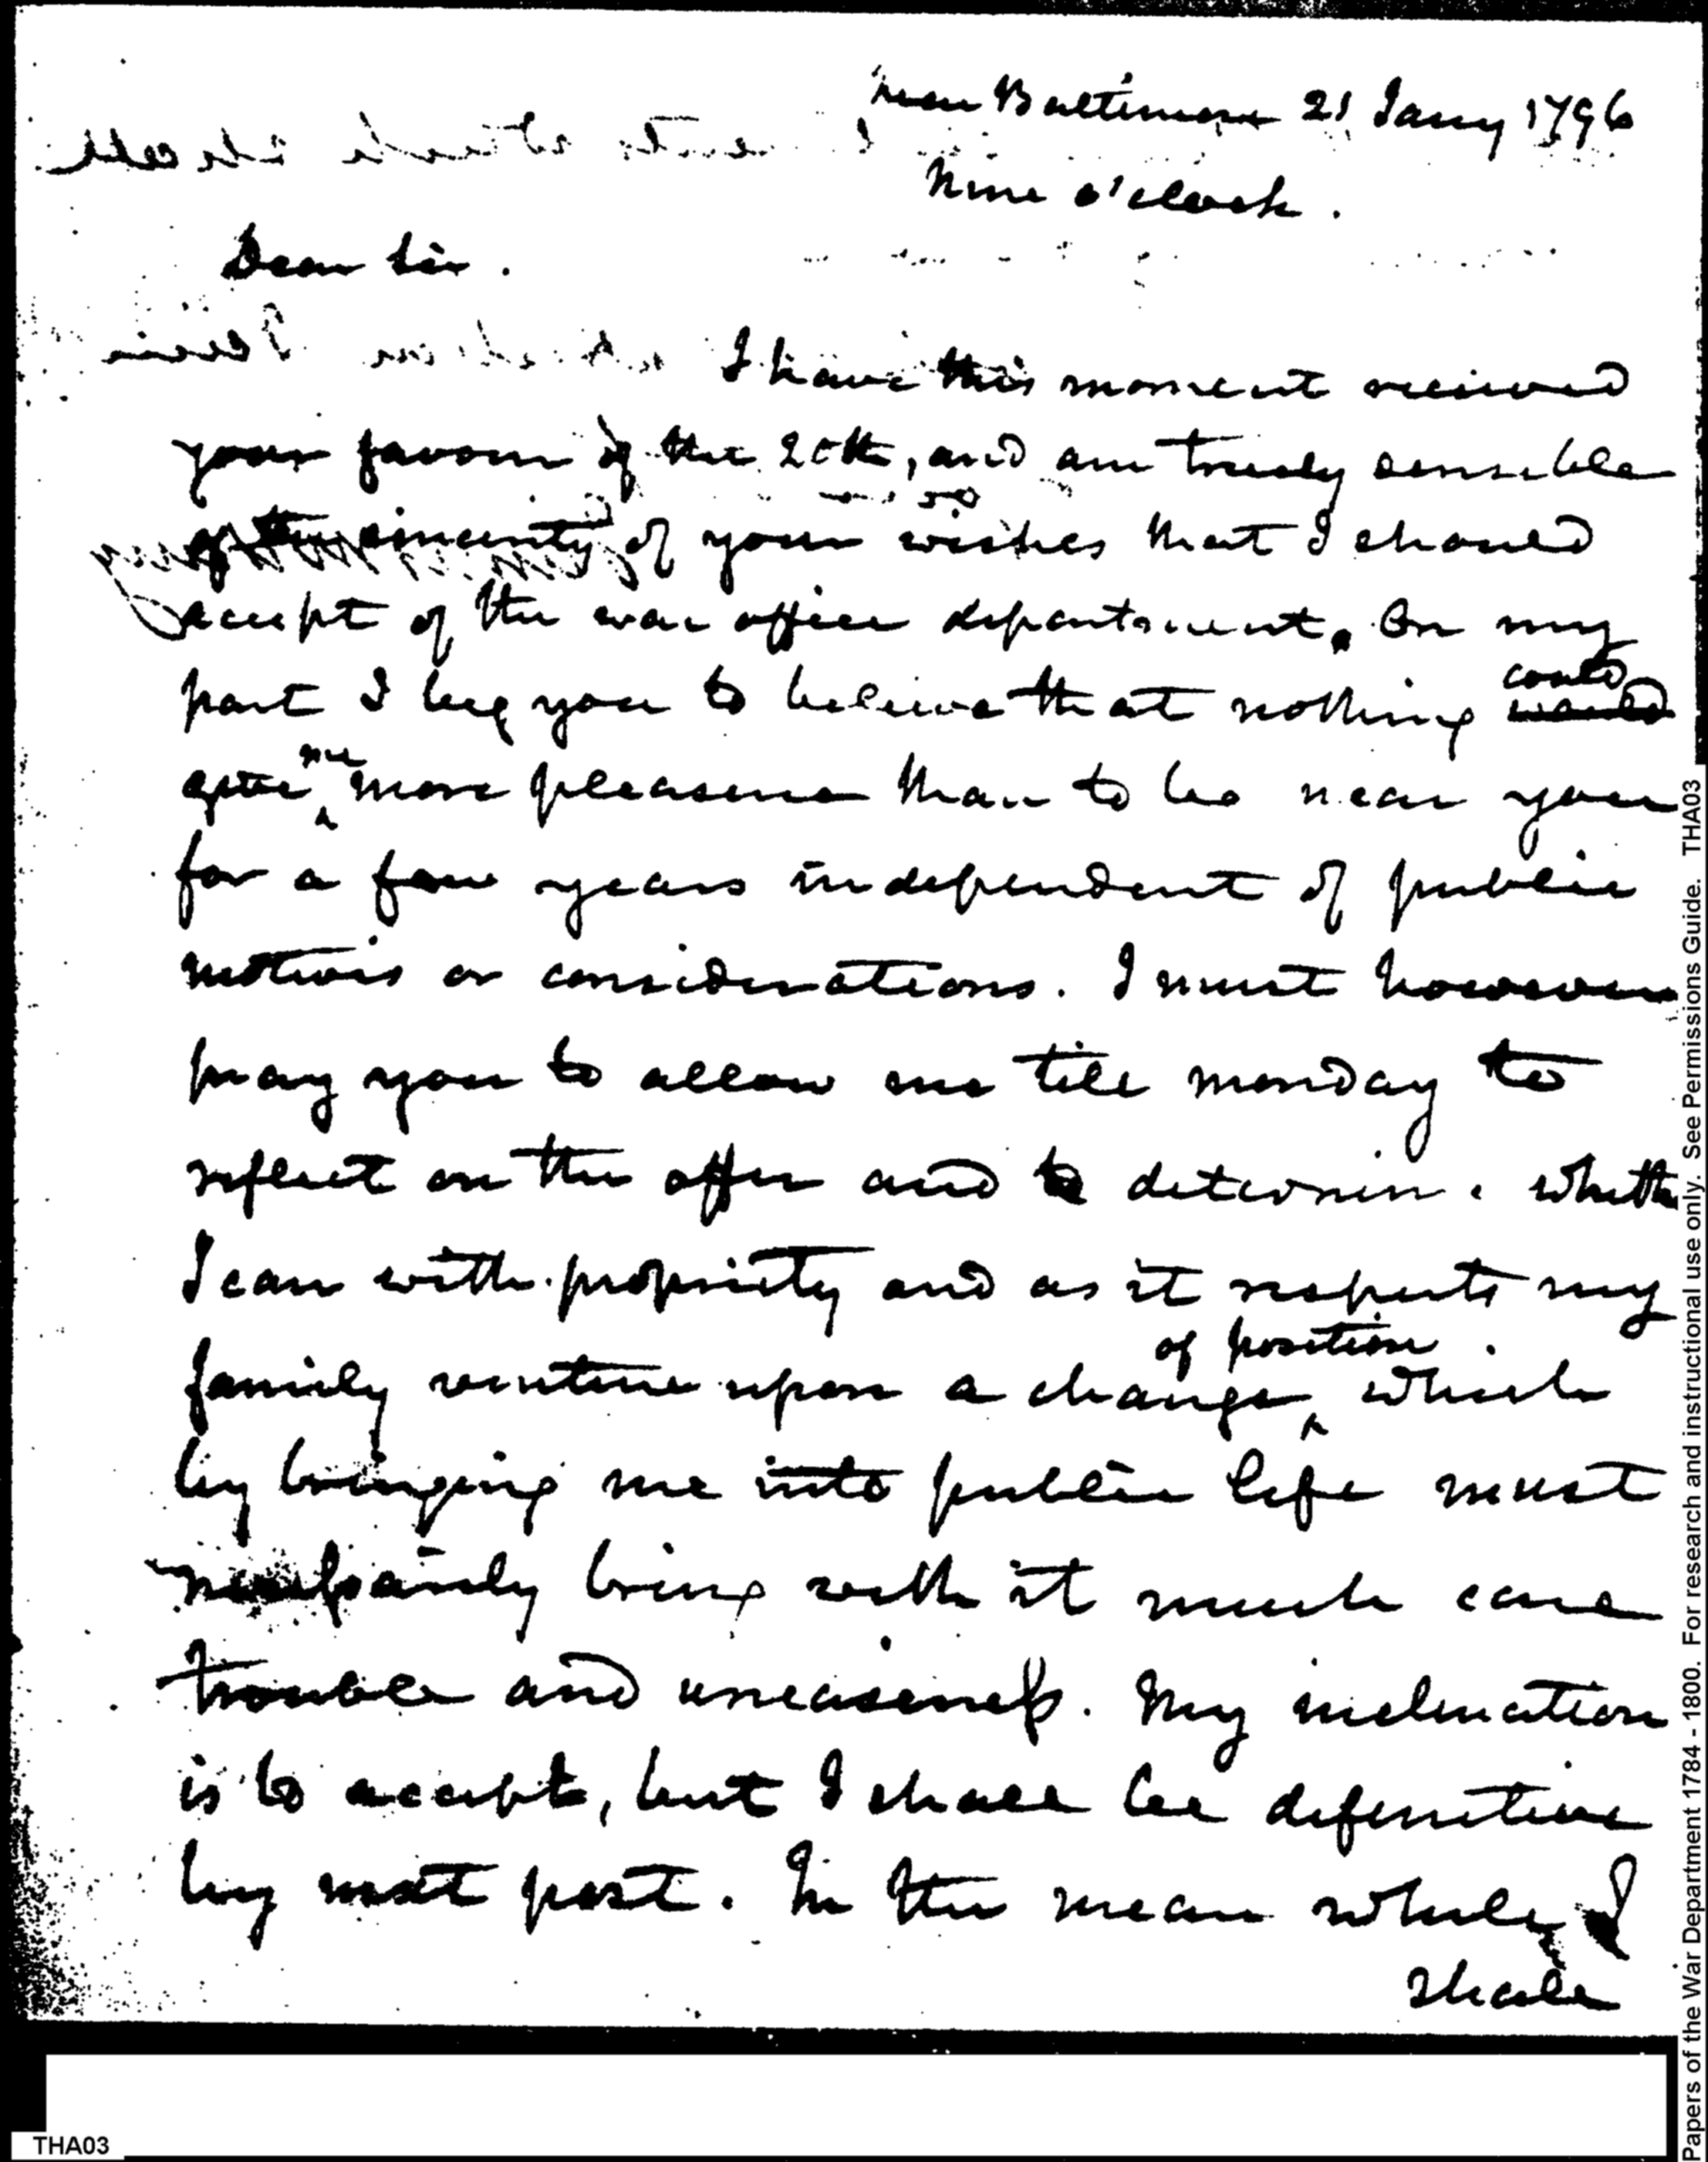 near Baltimore 21 Jany 1796
Nine o'clock.
Dear Sir.
I have this moment received
your favour of the 20th, and am truly sensible
of the sincerity of your wishes that I should
accept of the war office department. On my
part I beg you to believe that nothing could
give me more pleasure than to be near you
for a few years independent of public
motives or considerations. I must however
pray you to allow me till monday to
reflect on the offer and to determine whether
I can with propriety and as it respects my
family venture upon a change of position which
by bringing me into public life must
necessarily bring with it much care
trouble and uneasiness. My inclination
is to accept, but I shall be definitive
by next post. In the mean while I
shall
THA03
Papers of the War Department 1784 - 1800. For research and instructional use only. See Permissions Guide. THA03